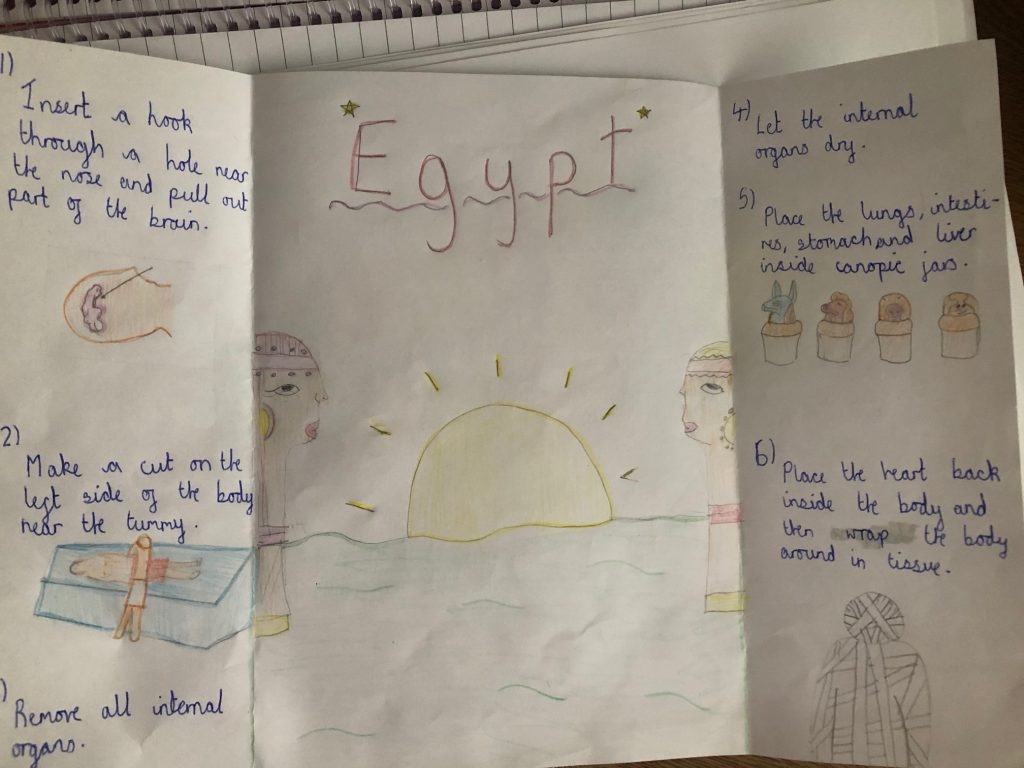 1)
Insert a hook
through a hole near
the nose and pull out
part of the brain.
2)
Make a cut on the
left side of the body
near the tummy.
)
Remove all internal
organs.
Egypt
4)
Let the internal
organs dry.
5)
Place the lungs, intesti-
nes, stomach and liver
inside canopic jars.
6)
Place the heart back
inside the body and
then wrap the body
around in tissue.